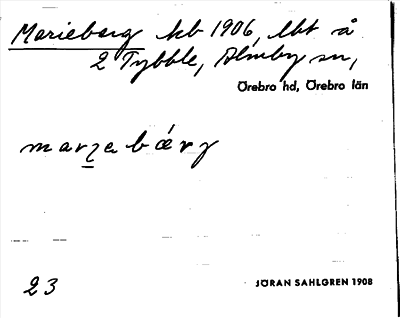 Marieberg kb 1906, lht å
2 Tybble, Almby sn,
Örebro hd, Örebro län
marzebærg
23
JÖRAN SAHLGREN 1908